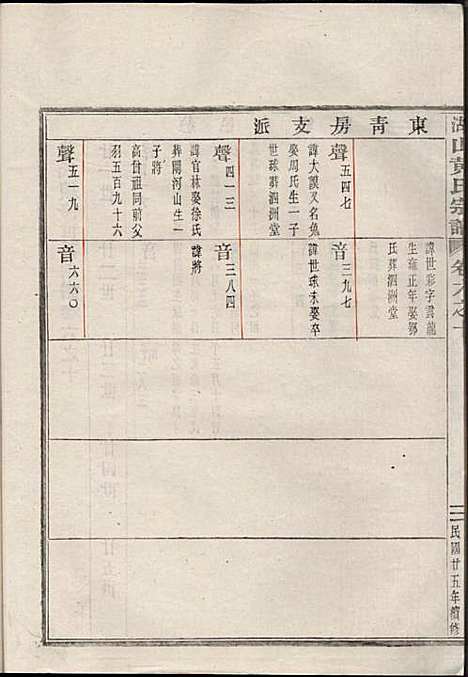 湖山黃氏宗譜 卷之
三 民國廿五年續修
東靑房支派
諱世彩字雲龍
生雍正年娶鄧
氏葬泗洲堂
聲五四七
諱大謨又名兔
娶周氏生一子
世球葬泗洲堂
音三九七
諱世球未娶卒
聲四一三
諱官林娶徐氏
葬開河山生一
子將
音三八四
諱將
高曾祖同前父
羽五百九十六
聲五一九
音六六〇